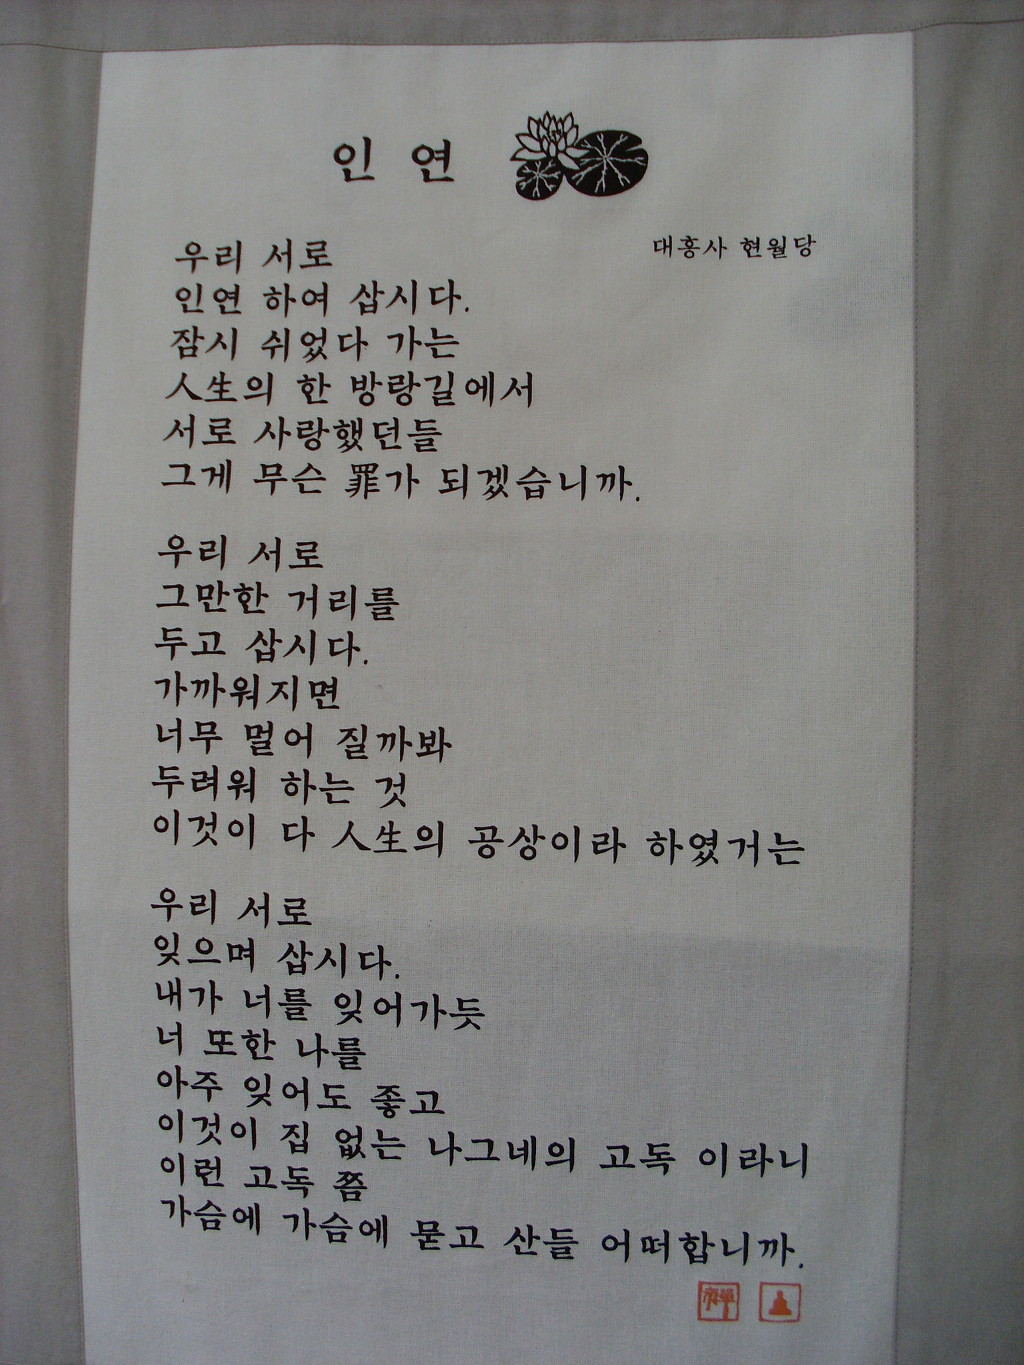 인 연
대흥사 현월당
우리 서로
인연 하여 삽시다.
잠시 쉬었다 가는
人生의 한 방랑길에서
서로 사랑했던들
그게 무슨 罪가 되겠습니까.
우리 서로
그만한 거리를
두고 삽시다.
가까워지면
너무 멀어 질까봐
두려워 하는 것
이것이 다 人生의 공상이라 하였거는
우리 서로
잊으며 삽시다.
내가 너를 잊어가듯
너 또한 나를
아주 잊어도 좋고
이것이 집 없는 나그네의 고독 이라니
이런 고독 쯤
가슴에 가슴에 묻고 산들 어떠합니까.
禪